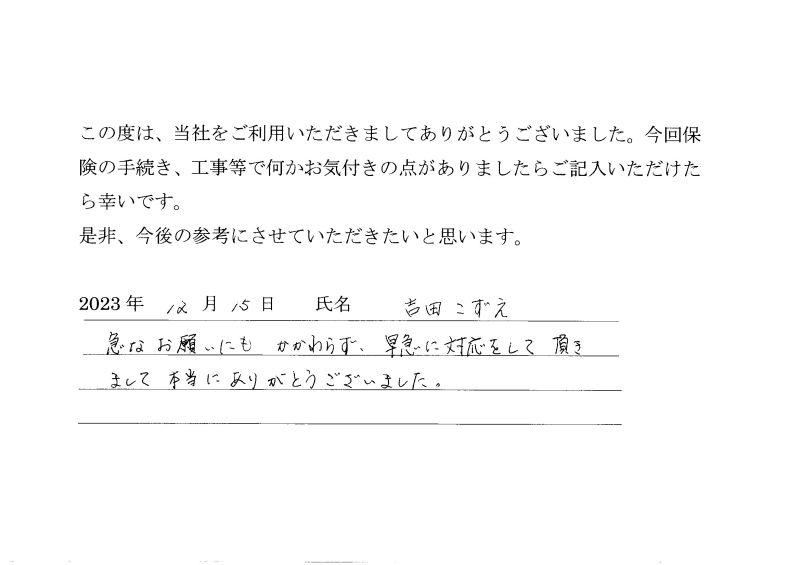 この度は、当社をご利用いただきましてありがとうございました。今回保
険の手続き、工事等で何かお気付きの点がありましたらご記入いただけた
ら幸いです。
是非、今後の参考にさせていただきたいと思います。
2023 年 12 月 15 日 氏名 吉田 こずえ
急な お願いにも かかわらず、早急に対応をして 頂き
まして 本当に ありがとうございました。